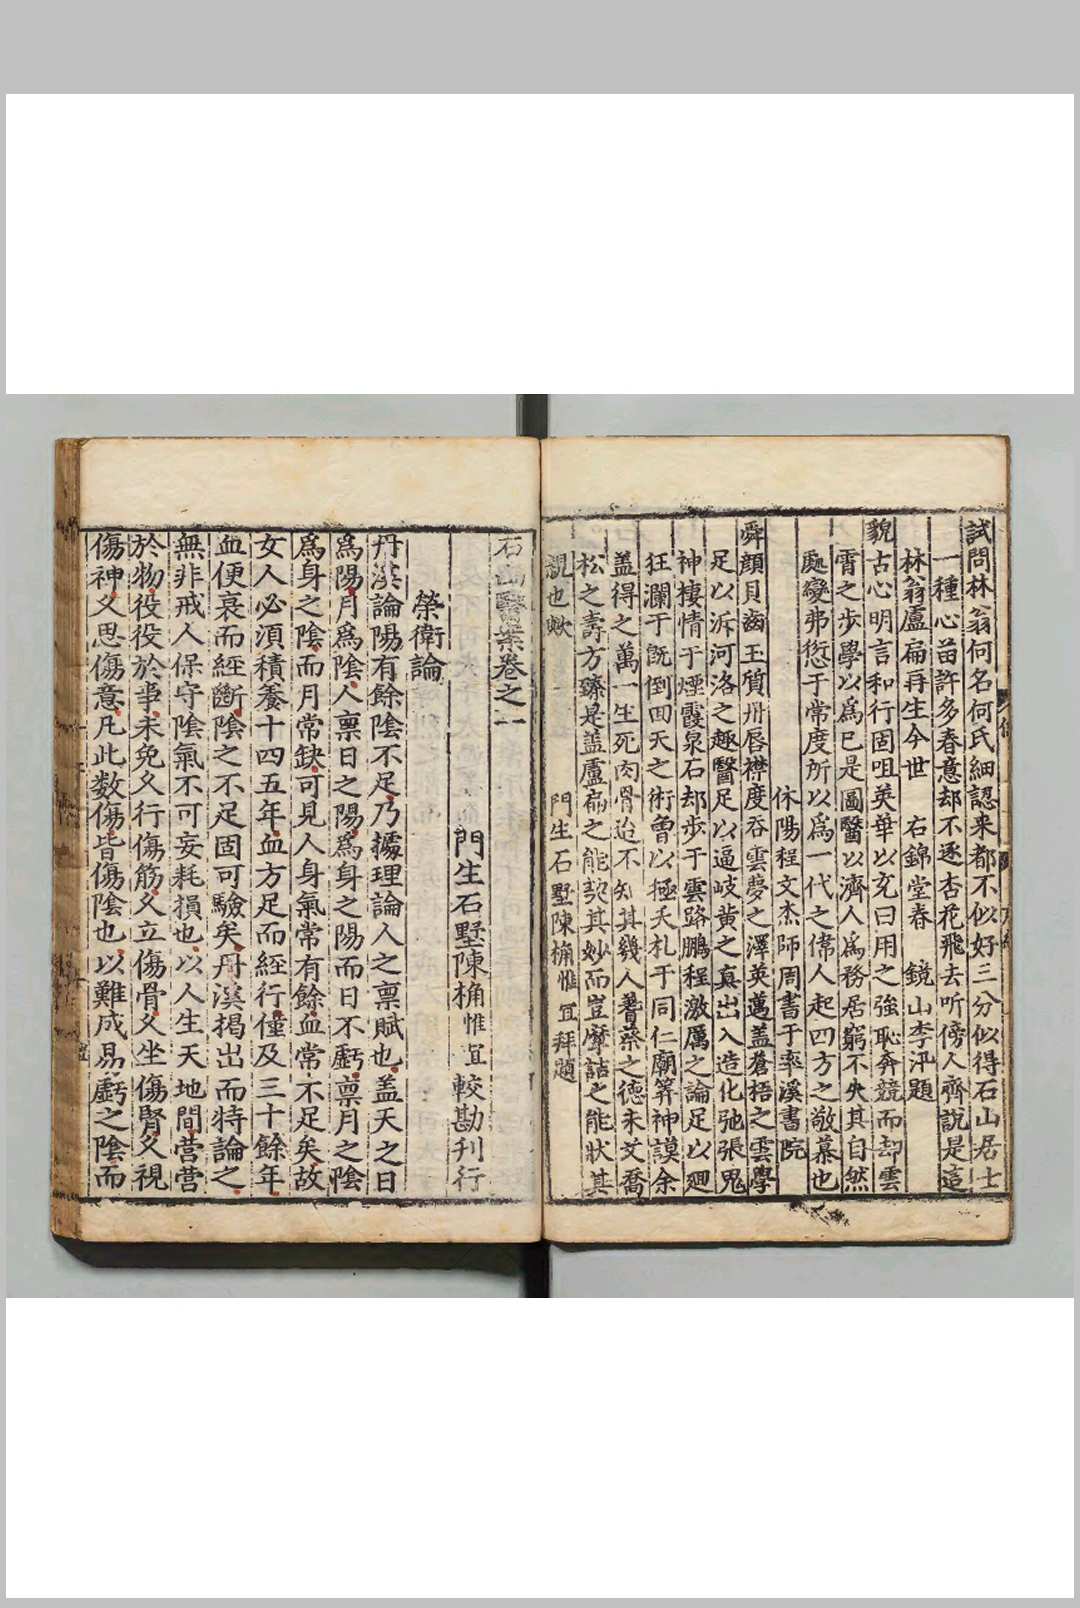 試問林翁何名何氏細認来都不似好三分似得石山居士
一種心苗許多春意却不逐杏花飛去听傍人齊說是這
林翁盧扁再生今世　右錦堂春　鏡山李汛題
貌古心明言和行固咀英華以充日用之強恥奔競而却雲
霄之步學以爲已是圖醫以濟人爲務居窮不失其自然
處變弗愆于常度所以爲一代之偉人起四方之敬慕也
休陽程文杰師周書于率溪書院
舜顔貝齒玉質卅唇襟度吞雲夢之澤英邁蓋蒼梧之雲學
足以泝河洛之趣醫足以逼岐黄之真出入造化弛張鬼
神棲情于煙霞泉石却步于雲路鵬程激厲之論足以廻
狂瀾于既倒囬天之術曾以拯夭札于同仁廟筭神謨余
盖得之萬一生死肉骨迨不知其幾人蓍蔡之德未艾喬
松之壽方臻是盖盧扁之能契其妙而豈摩詰之能狀其
覩也歟　門生石墅陳桷惟宜拜題
石山醫案卷之一
門生石墅陳桷惟宜較勘刋行
榮衛論
丹溪論陽有餘陰不足乃據理論人之禀賦也盖天之日
爲陽月爲陰人禀日之陽爲身之陽而日不虧禀月之陰
爲身之陰而月常缺可見人身氣常有餘血常不足矣故
女人必湏積養十四五年血方足而經行僅及三十餘年
血便衰而經斷陰之不足固可驗矣丹溪揭出而特論之
無非戒人保守陰氣不可妄耗損也以人生天地間营营
於物役役於事未免久行傷筋久立傷骨久坐傷腎久視
傷神久思傷意凢此数傷皆傷陰也以難成易虧之陰而